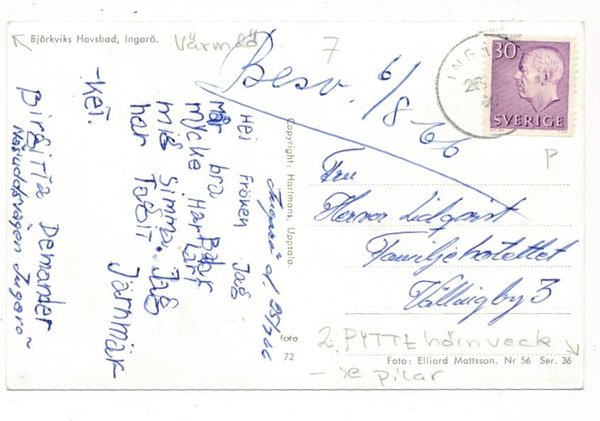 Björkviks Havsbad, Ingarö.
Värmdö
7
Besv. 6/8-66
INGA
30
SVERIGE
P
Ingarö d. 25/7-66
Hei Fröken Jag
mår bra Pappa
mycke Har lärt
mig simma. Jag
har Tagit Järnmär
-ket.
Birgitta Demander
Ingarö
Copyright: Hartmans, Uppsala.
Fru
Lidqvist
Familjehotellet
Vällingby 3
foto
72
2. PYTTE hörnveck
Foto: Elliord Mattsson. Nr 56 Ser. 36
- se pilar